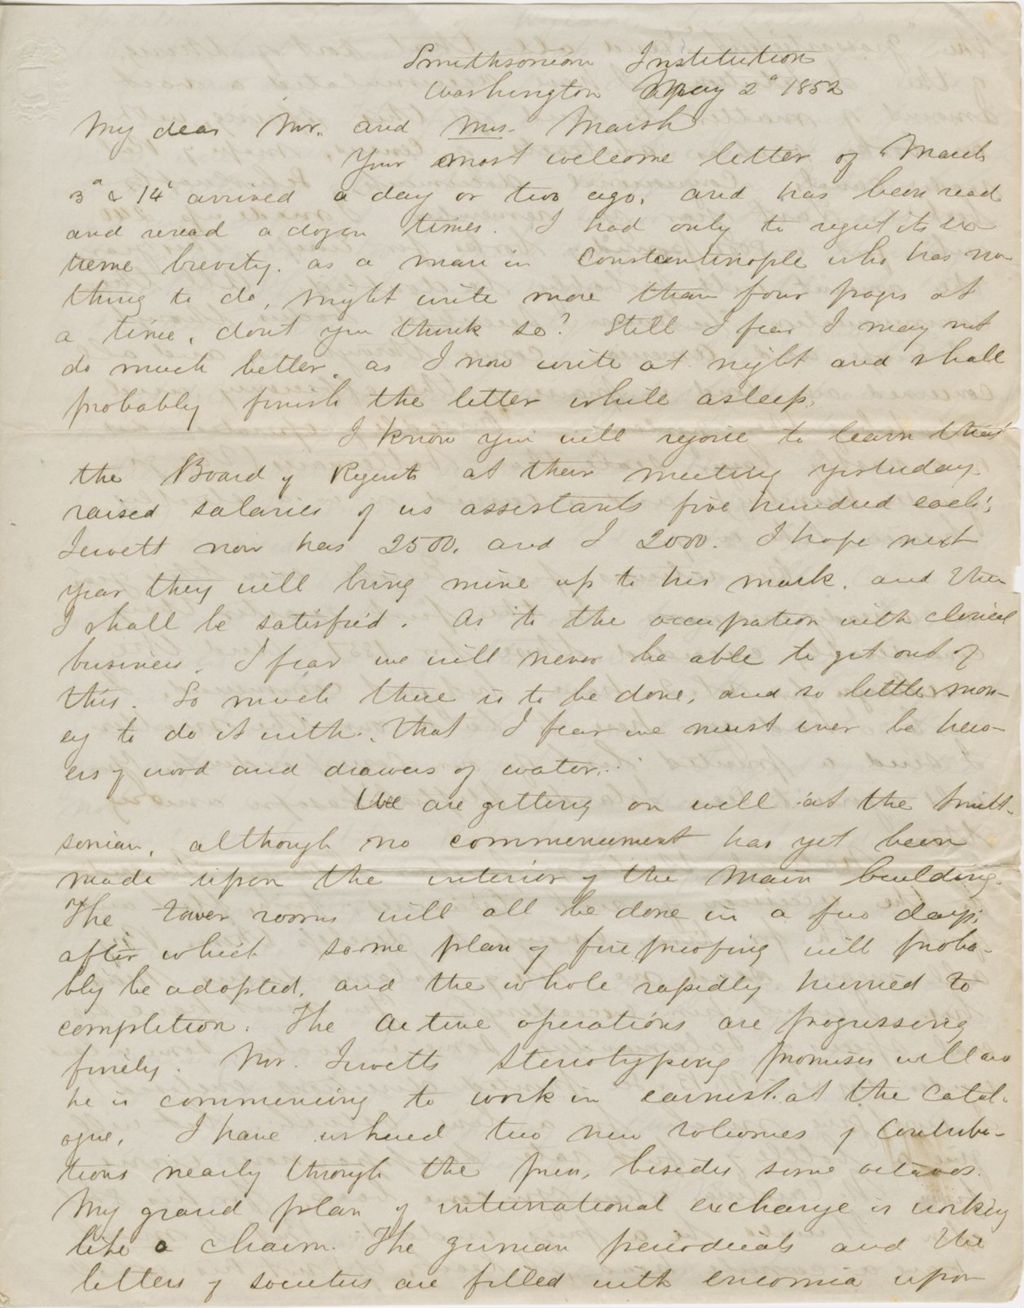 Smithsonian Institution
Washington May 2d 1852
My dear Mr. and Mrs. Marsh
Your most welcome letter of March
3d & 14th arrived a day or two ago, and has been read
and reread a dozen times. I had only to regret its ex-
treme brevity, as a man in Constantinople who has no-
thing to do, might write more than four pages at
a time, dont you think so? Still I fear I may not
do much better, as I now write at night and shall
probably finish the letter while asleep.
I know you will rejoice to learn that
the Board of Regents at their meeting yesterday
raised salaries of us assistants five hundred each;
Jewett now has 2500, and I 2000. I hope next
year they will bring mine up to his mark, and then
I shall be satisfied. As to the occupation with clerical
business, I fear we will never be able to get out of
this. So much there is to be done, and so little mon-
ey to do it with, that I fear we must ever be hew-
ers of wood and drawers of water.
We are getting on well at the Smith-
sonian, although no commencement has yet been
made upon the interior of the main building.
The tower rooms will all be done in a few days,
after which some plan of fireproofing will proba-
bly be adopted, and the whole rapidly hurried to
completion. The active operations are progressing
finely. Mr. Jewetts Stereotyping promises well and
he is commencing to work in earnest at the Catal-
ogue. I have ushered two new volumes of Contribu-
tions nearly through the press, besides some octavos.
My grand plan of international exchange is working
like a charm. The German periodicals and the
letters of societies are filled with encomia upon